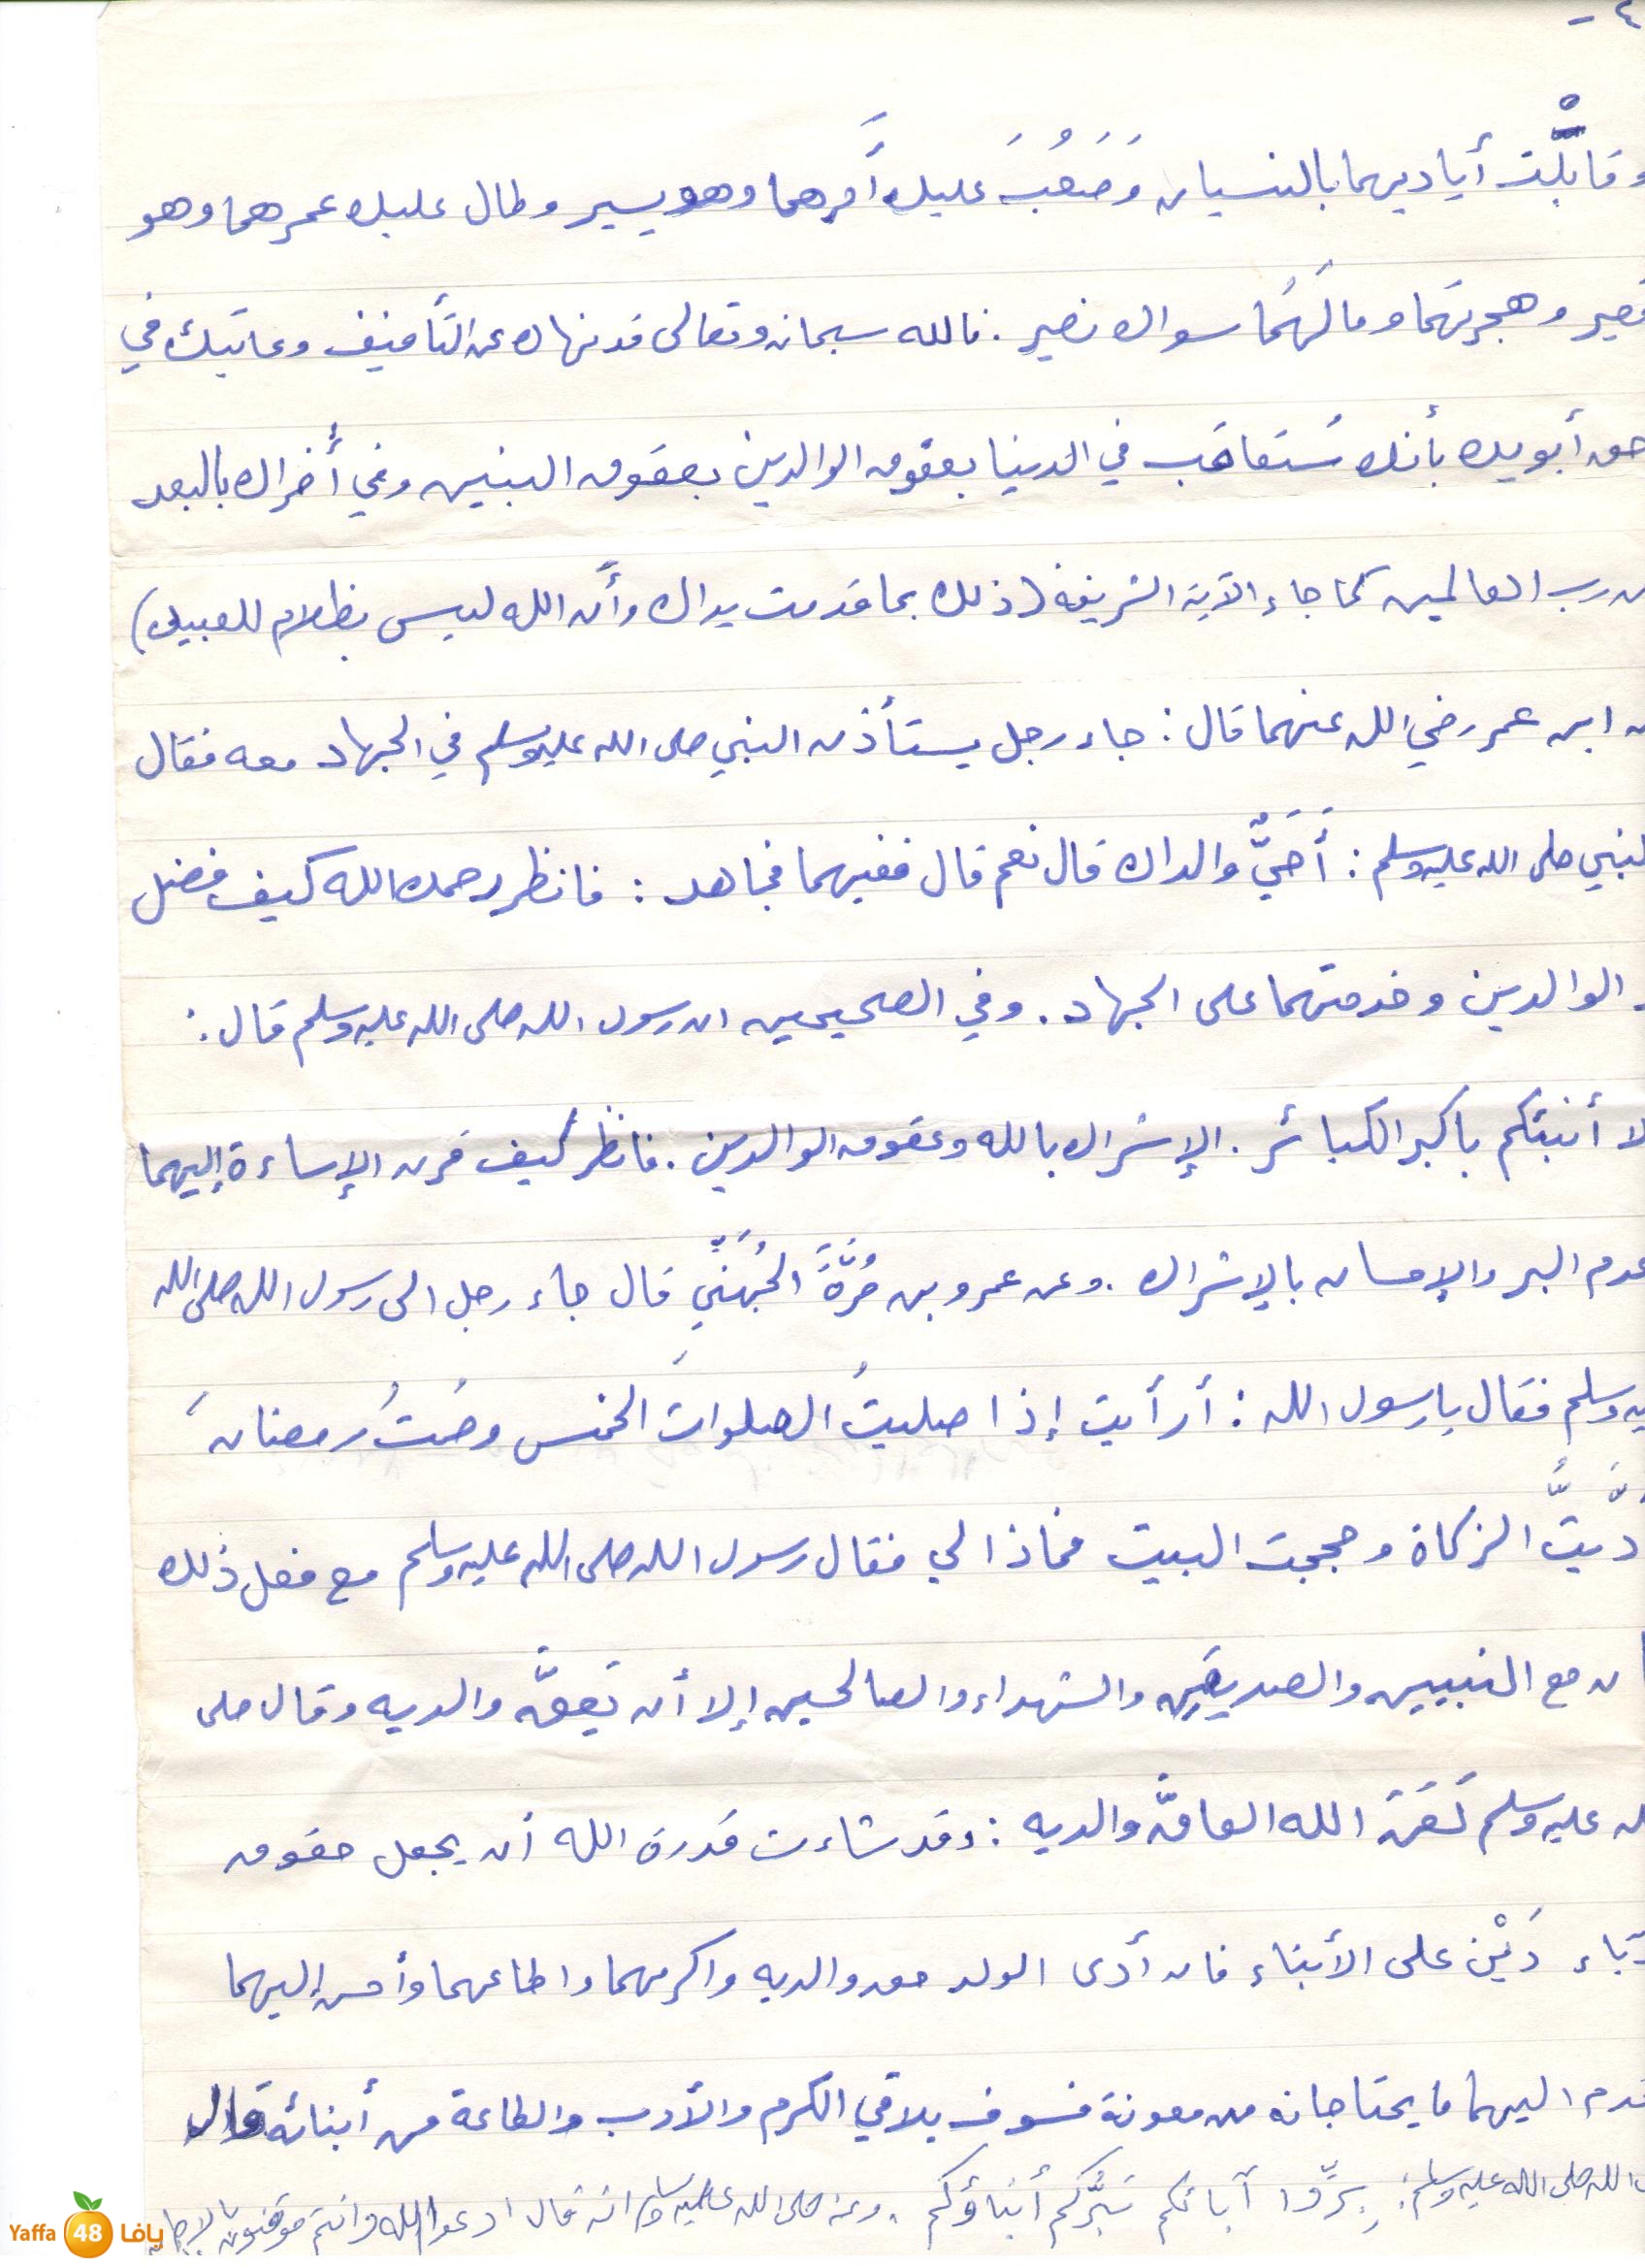 ٤ -
وقابلْت أياديهما بالنسيان وَصَعُبَ عليك أَمرهما وهو يسير وطال عليك عمرهما وهو
قصير وهجرتهما وما لَهُما سواك نصير . فالله سبحانه وتعالى قد نهاك عن التأفيف وعاتبك في
حق أبويك بأنك سَتعاقب في الدنيا بعقوق الوالدين بعقوق البنين وفي أُخراك بالبعد
من رب العالمين كما جاء الآية الشريفة (ذلك بما قدمت يداك وأن الله ليس بظلام للعبيد)
ابن عمر رضي الله عنهما قال : جاء رجل يستأذن النبي صلى الله عليه وسلم في الجهاد معه فقال
النبي صلى الله عليه وسلم : أَحَيٌّ والداك قال نعم قال ففيهما فجاهد : فانظر رحمك الله كيف فضل
الوالدين وخدمتهما على الجهاد . وفي الصحيحين ان رسول الله صلى الله عليه وسلم قال :
لا أنبئكم باكبر الكبائر . الإشراك بالله وعقوق الوالدين . فانظر كيف قرن الإساءة إليهما
عدم البر والإحسان بالإشراك . وعن عمرو بن مُرَّةَ الجُهَنِّي قال جاء رجل الى رسول الله صلى الله
يه وسلم فقال يا رسول الله : أرأيت إذا صليتُ الصلواتِ الخمس وصُمتُ رمضانَ
دَّيتُّ الزكاة وحججت البيت فماذا لي فقال رسول الله صلى الله عليه وسلم مع فعل ذلك
ان مع النبيين والصديقين والشهداء والصالحين إلا أن يَعقَّ والديه وقال صلى
له عليه وسلم لَعَنَ الله العاقَّ والديه : وقد شاءت قدرة الله أن يجعل حقوق
آباء دَيْن على الأبناء فان أدى الولد حق والديه واكرمهما واطاعهما وأحسن إليهما
قدم اليهما ما يحتاجانه من معونة فسوف يلاقي الكرم والأدب والطاعة من أبنائه قال
الله صلى الله عليه وسلم : بِرُّوا آبائكم تَبُرُّكم أبناؤكم . وعنه صلى الله عليه وسلم انه قال ادعوا الله وانتم موقنون
Yaffa 48 يافا